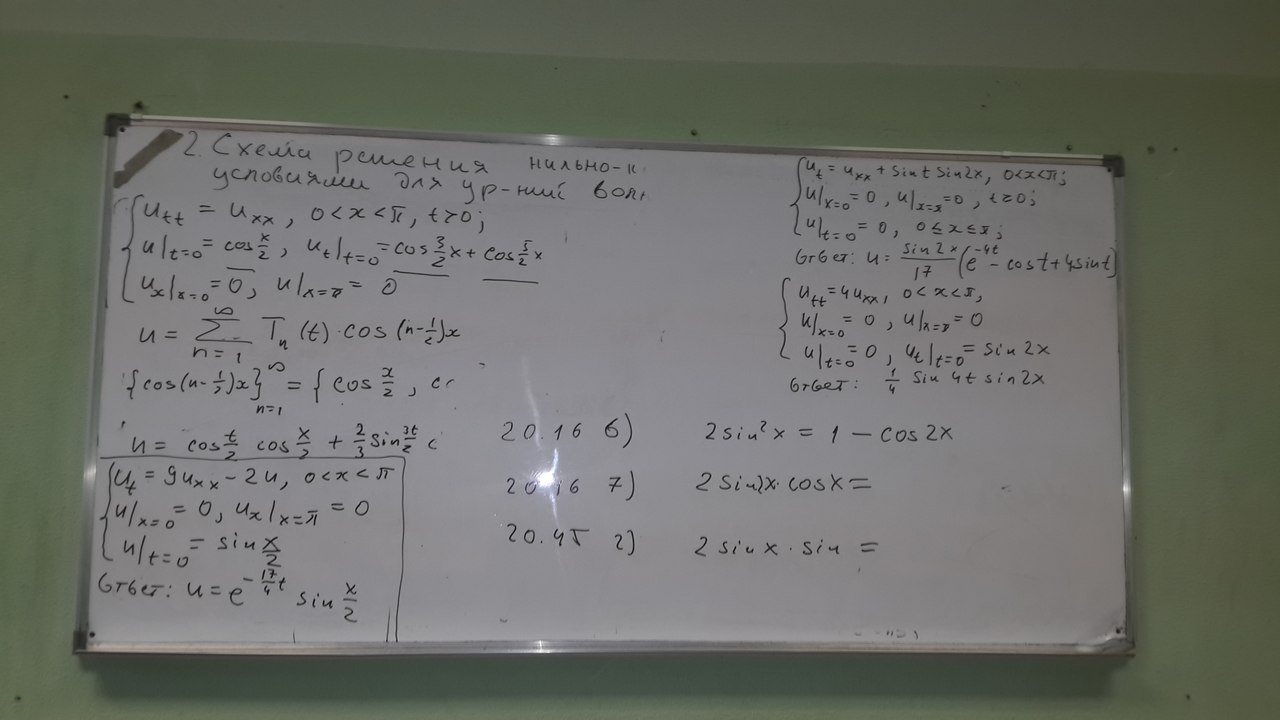 2. Схема решения нильно-к
условиями для ур-ний вол
{ u_tt = u_xx, 0<x<π, t>0;
u|_t=0 = cos x/2, u_t|_t=0 = cos 3/2 x + cos 5/2 x
u_x|_x=0 = 0, u|_x=π = 0
u = ∑_{n=1}^∞ T_n(t)·cos(n-1/2)x
{cos(n-1/2)x}_{n=1}^∞ = {cos x/2, c
u = cos t/2 cos x/2 + 2/3 sin 3t/2 c
{ u_t = 9u_xx - 2u, 0<x<π
u|_x=0 = 0, u_x|_x=π = 0
u|_t=0 = sin x/2
Ответ: u = e^{-17/4 t} sin x/2
20.16 6)
20.16 7)
20.45 2)
{ u_t = u_xx + sin t sin 2x, 0<x<π;
u|_x=0 = 0, u|_x=π = 0, t>0;
u|_t=0 = 0, 0≤x≤π;
Ответ: u = sin 2x/17 (e^{-4t} - cos t + 4 sin t)
{ u_tt = 4u_xx, 0<x<π,
u|_x=0 = 0, u|_x=π = 0
u|_t=0 = 0, u_t|_t=0 = sin 2x
Ответ: 1/4 sin 4t sin 2x
2 sin² x = 1 - cos 2x
2 sin 2x · cos x =
2 sin x · sin =